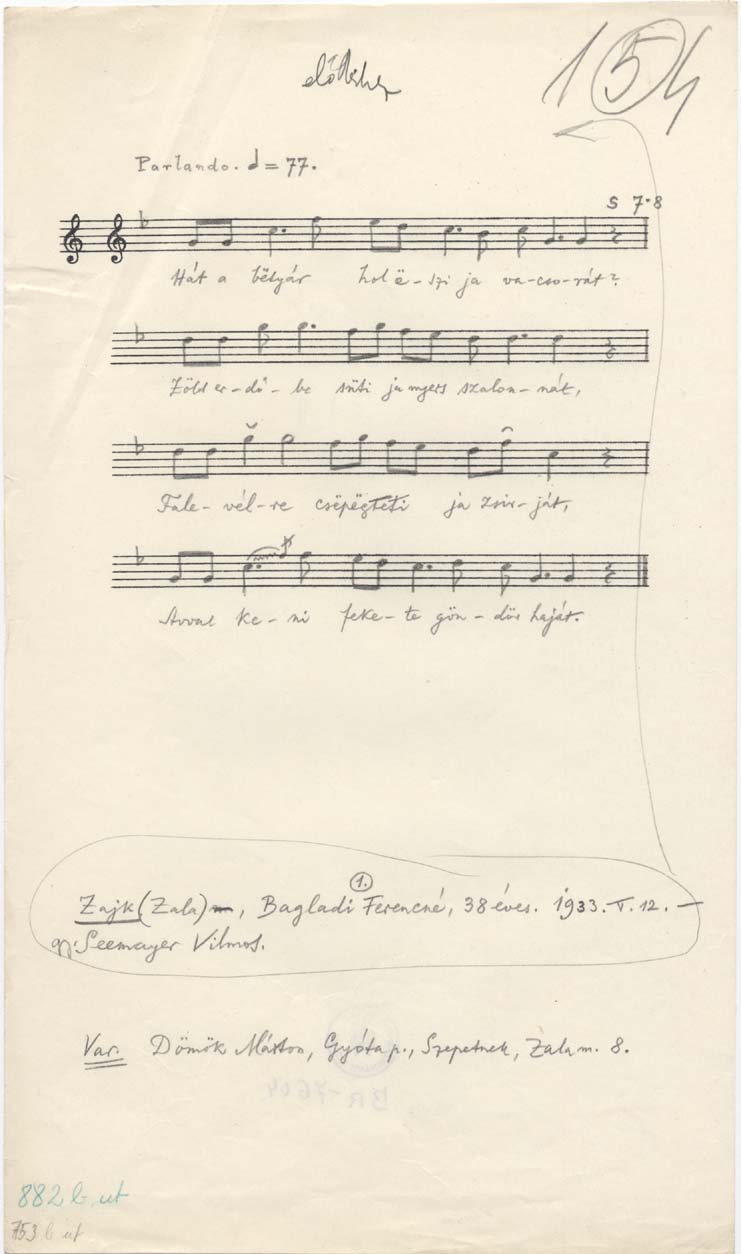 154
Parlando. = 77.
S 7·8
Hát a bëtyár hol ë-szi ja va-cso-rát?
Zöld er-dő-be süti ja nyers szalon-nát,
Fale-vél-re csëpëgteti ja zsir-ját,
Avval ke-ni feke-te gön-dör haját.
1.
Zajk (Zala), Bagladi Ferencné, 38 éves. 1933. V. 12. —
gy. Seemayer Vilmos.
Var. Dömök Márton, Gyóta p., Szepetnek, Zala m. 8.
BR-7604
882 b. ut
753 b ut